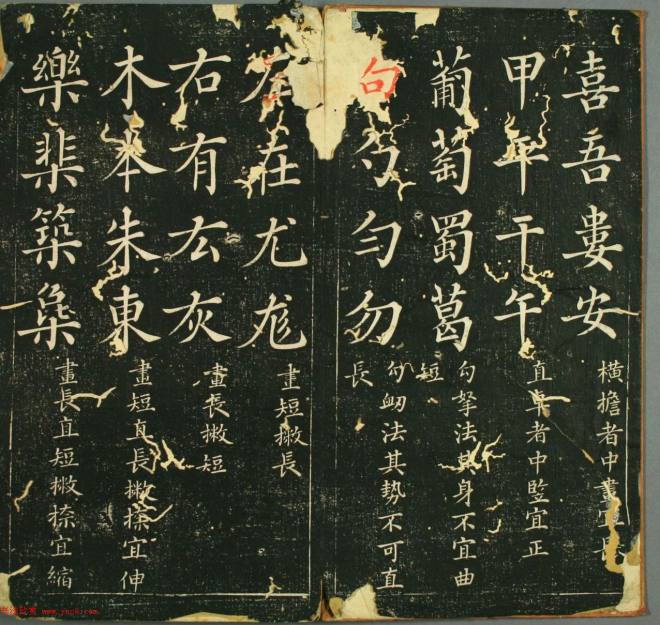 喜吾婁安
横擔者中畫宜長
甲平干午
直卓者中竪宜正
葡萄蜀葛
勾拏法其身不宜曲
短
句勺勻勿
勾衂法其勢不可直
長
左在尤尨
畫短撇長
右有厷灰
畫長撇短
木本朱東
畫短直長撇捺宜伸
樂棐築
畫長直短撇捺宜縮
www.yac8.com